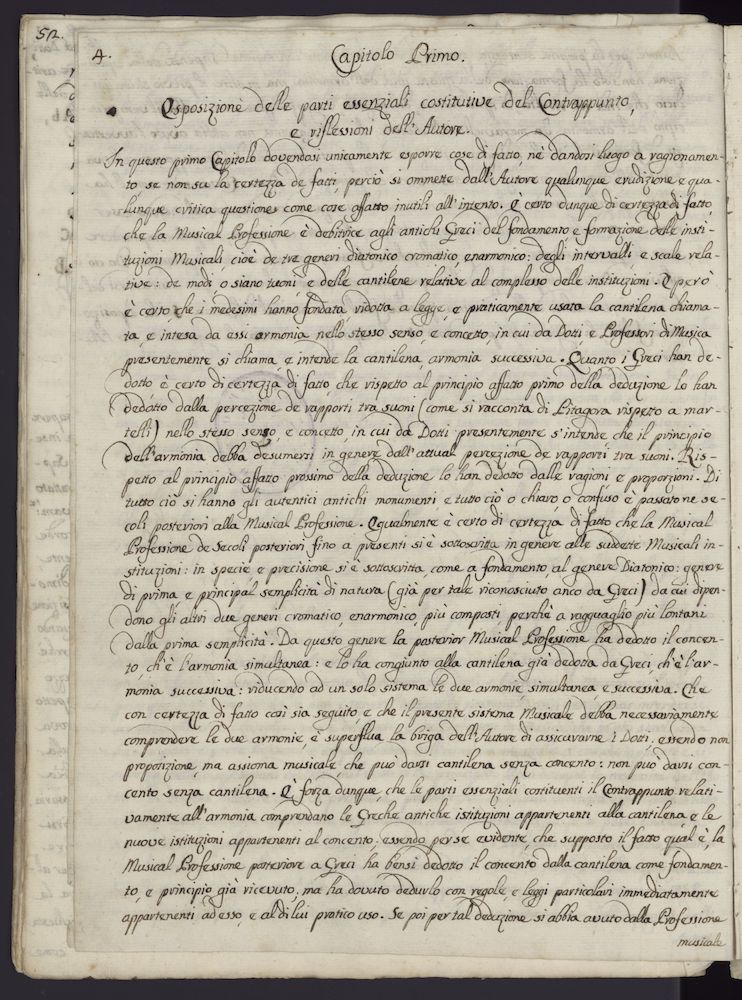 52.
4.
Capitolo Primo.
Esposizione delle parti essenziali costitutive del Contrappunto,
e riflessioni dell'Autore.
In questo primo Capitolo dovendosi unicamente esporre cose di fatto, nè dandosi luogo a ragionamen-
to se non su la certezza de fatti, perciò si ommette dall'Autore qualunque erudizione e qua-
lunque critica questione, come cose affatto inutili all'intento. È certo dunque di certezza di fatto,
che la Musical Professione è debitrice agli antichi Greci del fondamento e formazione delle insti-
tuzioni Musicali cioè de tre generi diatonico cromatico, enarmonico: degli intervalli e scale rela-
tive: de modi, o siano tuoni, e delle cantilene relative al complesso delle instituzioni. E però
è certo che i medesimi hanno fondata, ridotta a legge, e praticamente usata la cantilena chiama-
ta, e intesa da essi armonia nello stesso senso, e concetto, in cui da Dotti, e Professori di Musica
presentemente si chiama, e intende la cantilena armonia successiva. Quanto i Greci han de-
dotto è certo di certezza di fatto, che rispetto al principio affatto primo della deduzione lo han
dedotto dalla percezione de rapporti tra suoni (come si racconta di Pitagora rispetto a mar-
telli) nello stesso senso, e concetto, in cui da Dotti presentemente s'intende, che il principio
dell'armonia debba desumersi in genere dall'attual percezione de rapporti tra suoni. Ris-
petto al principio affatto prossimo della deduzione lo han dedotto dalle ragioni e proporzioni. Di
tutto ciò si hanno gli autentici antichi monumenti e tutto ciò o chiaro, o confuso è passato ne se-
coli posteriori alla Musical Professione. Egualmente è certo di certezza di fatto che la Musical
Professione de Secoli posteriori fino a presenti si è sottoscritta in genere alle suddette Musicali in-
stituzioni: in specie e precisione si è sottoscritta, come a fondamento, al genere Diatonico: genere
di prima e principal semplicità di natura (già per tale riconosciuto anco da Greci) da cui dipen-
dono gli altri due generi cromatico, enarmonico, più composti, perchè a ragguaglio più lontani
dalla prima semplicità. Da questo genere la posterior Musical Professione ha dedotto il concen-
to, ch'è l'armonia simultanea: e lo ha congiunto alla cantilena già dedotta da Greci, ch'è l'ar-
monia successiva: riducendo ad un solo sistema le due armonie, simultanea e successiva. Che
con certezza di fatto così sia seguito, e che il presente sistema Musicale debba necessariamente
comprendere le due armonie, è superflua la briga dell'Autore di assicurarne i Dotti, essendo non
proposizione, ma assioma musicale, che può darsi cantilena senza concento: non può darsi con-
cento senza cantilena. È forza dunque, che le parti essenziali costituenti il Contrappunto relati-
vamente all'armonia comprendano le Greche antiche istituzioni appartenenti alla cantilena, e le
nuove istituzioni appartenenti al concento: essendo per se evidente, che supposto il fatto qual è, la
Musical Professione posteriore a Greci ha bensì dedotto il concento dalla cantilena come fondamen-
to, e principio già ricevuto, ma ha dovuto dedurlo con regole, e leggi particolari immediatamente
appartenenti ad esso, e al di lui pratico uso. Se poi per tal deduzione si abbia avuto dalla Professione
musicale